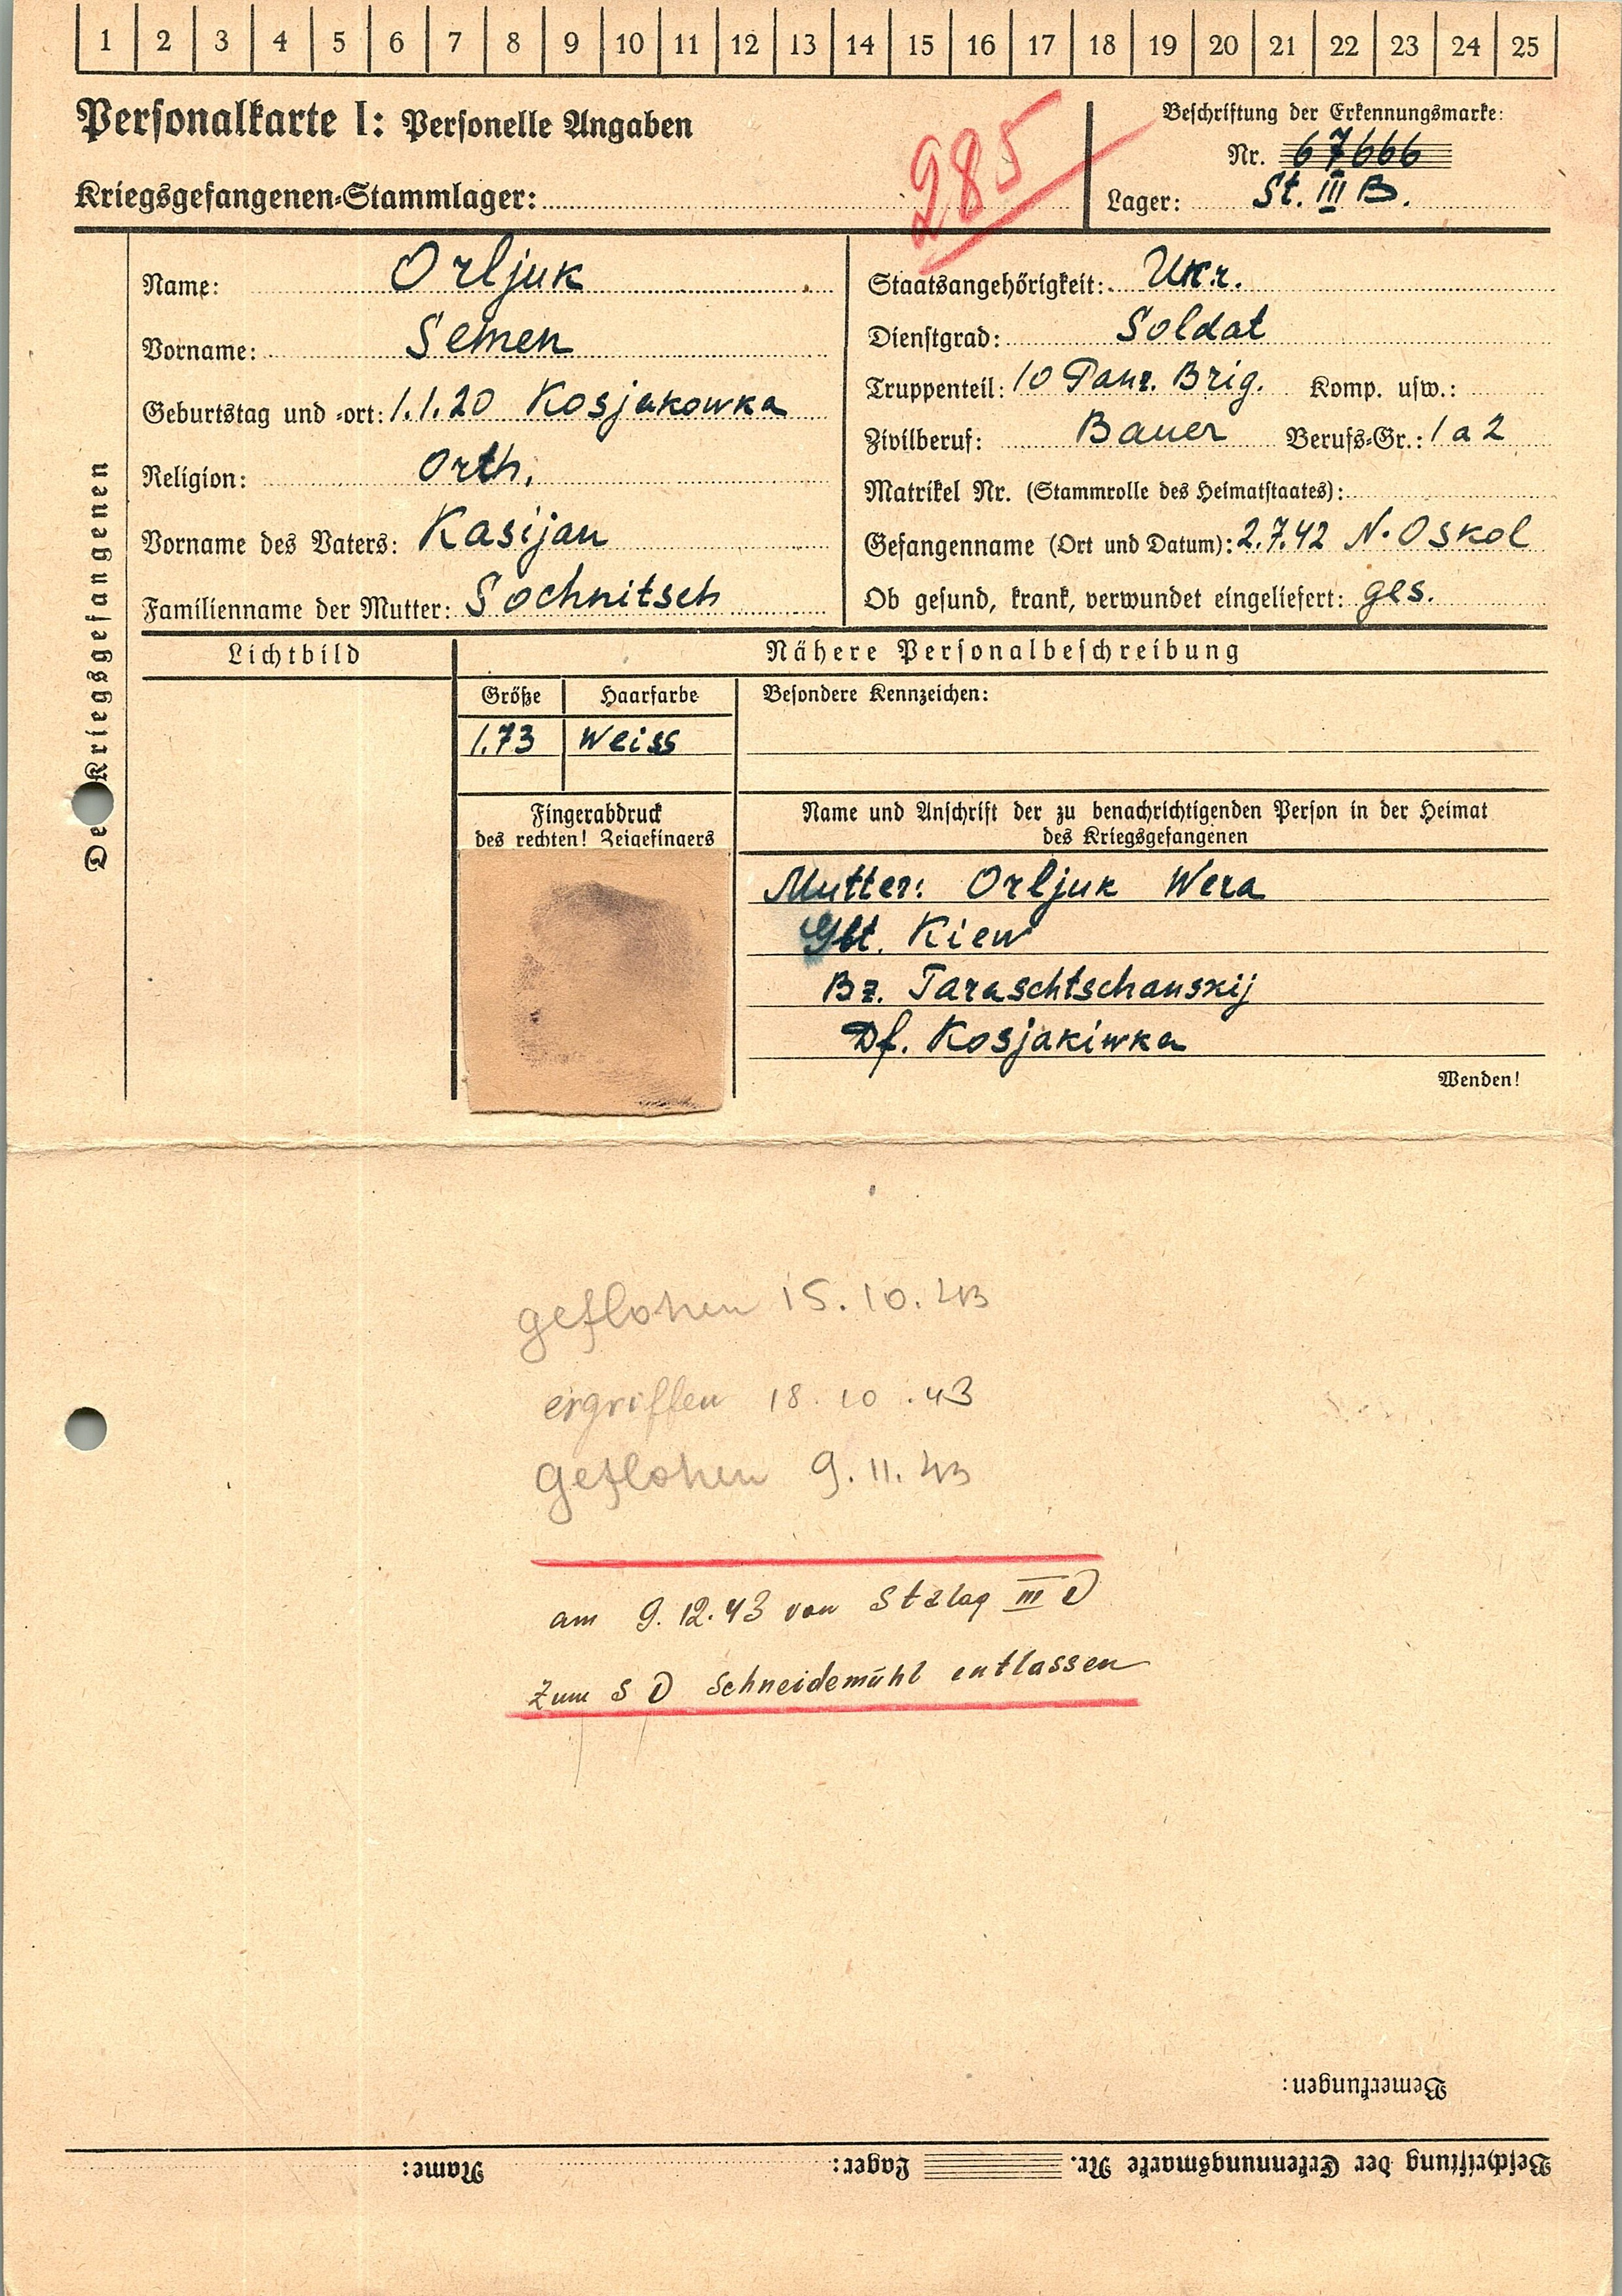 1 2 3 4 5 6 7 8 9 10 11 12 13 14 15 16 17 18 19 20 21 22 23 24 25
Personalkarte I: Personelle Angaben
Kriegsgefangenen-Stammlager:
285
Beschriftung der Erkennungsmarke:
Nr. 67666
Lager: St. III B.
Des Kriegsgefangenen
Name: Orljuk
Vorname: Semen
Geburtstag und -ort: 1.1.20 Kosjakowka
Religion: Orth.
Vorname des Vaters: Kasijan
Familienname der Mutter: Sochnitsch
Staatsangehörigkeit: Ukr.
Dienstgrad: Soldat
Truppenteil: 10 Panz. Brig. Komp. usw.:
Zivilberuf: Bauer Berufs-Gr.: 1a2
Matrikel Nr. (Stammrolle des Heimatstaates):
Gefangenname (Ort und Datum): 2.7.42 N. Oskol
Ob gesund, krank, verwundet eingeliefert: ges.
Lichtbild
Nähere Personalbeschreibung
Größe Haarfarbe
1.73 Weiss
Besondere Kennzeichen:
Fingerabdruck
des rechten! Zeigefingers
Name und Anschrift der zu benachrichtigenden Person in der Heimat
des Kriegsgefangenen
Mutter: Orljuk Wera
Gbt. Kiew
Bz. Taraschtschanskij
Df. Kosjakiwka
Wenden!
geflohen 15.10.43
ergriffen 18.10.43
geflohen 9.11.43
am 9.12.43 von Stalag III D
zum SD Schneidemühl entlassen
Bemerkungen:
Beschriftung der Erkennungsmarke Nr. Lager: Name: